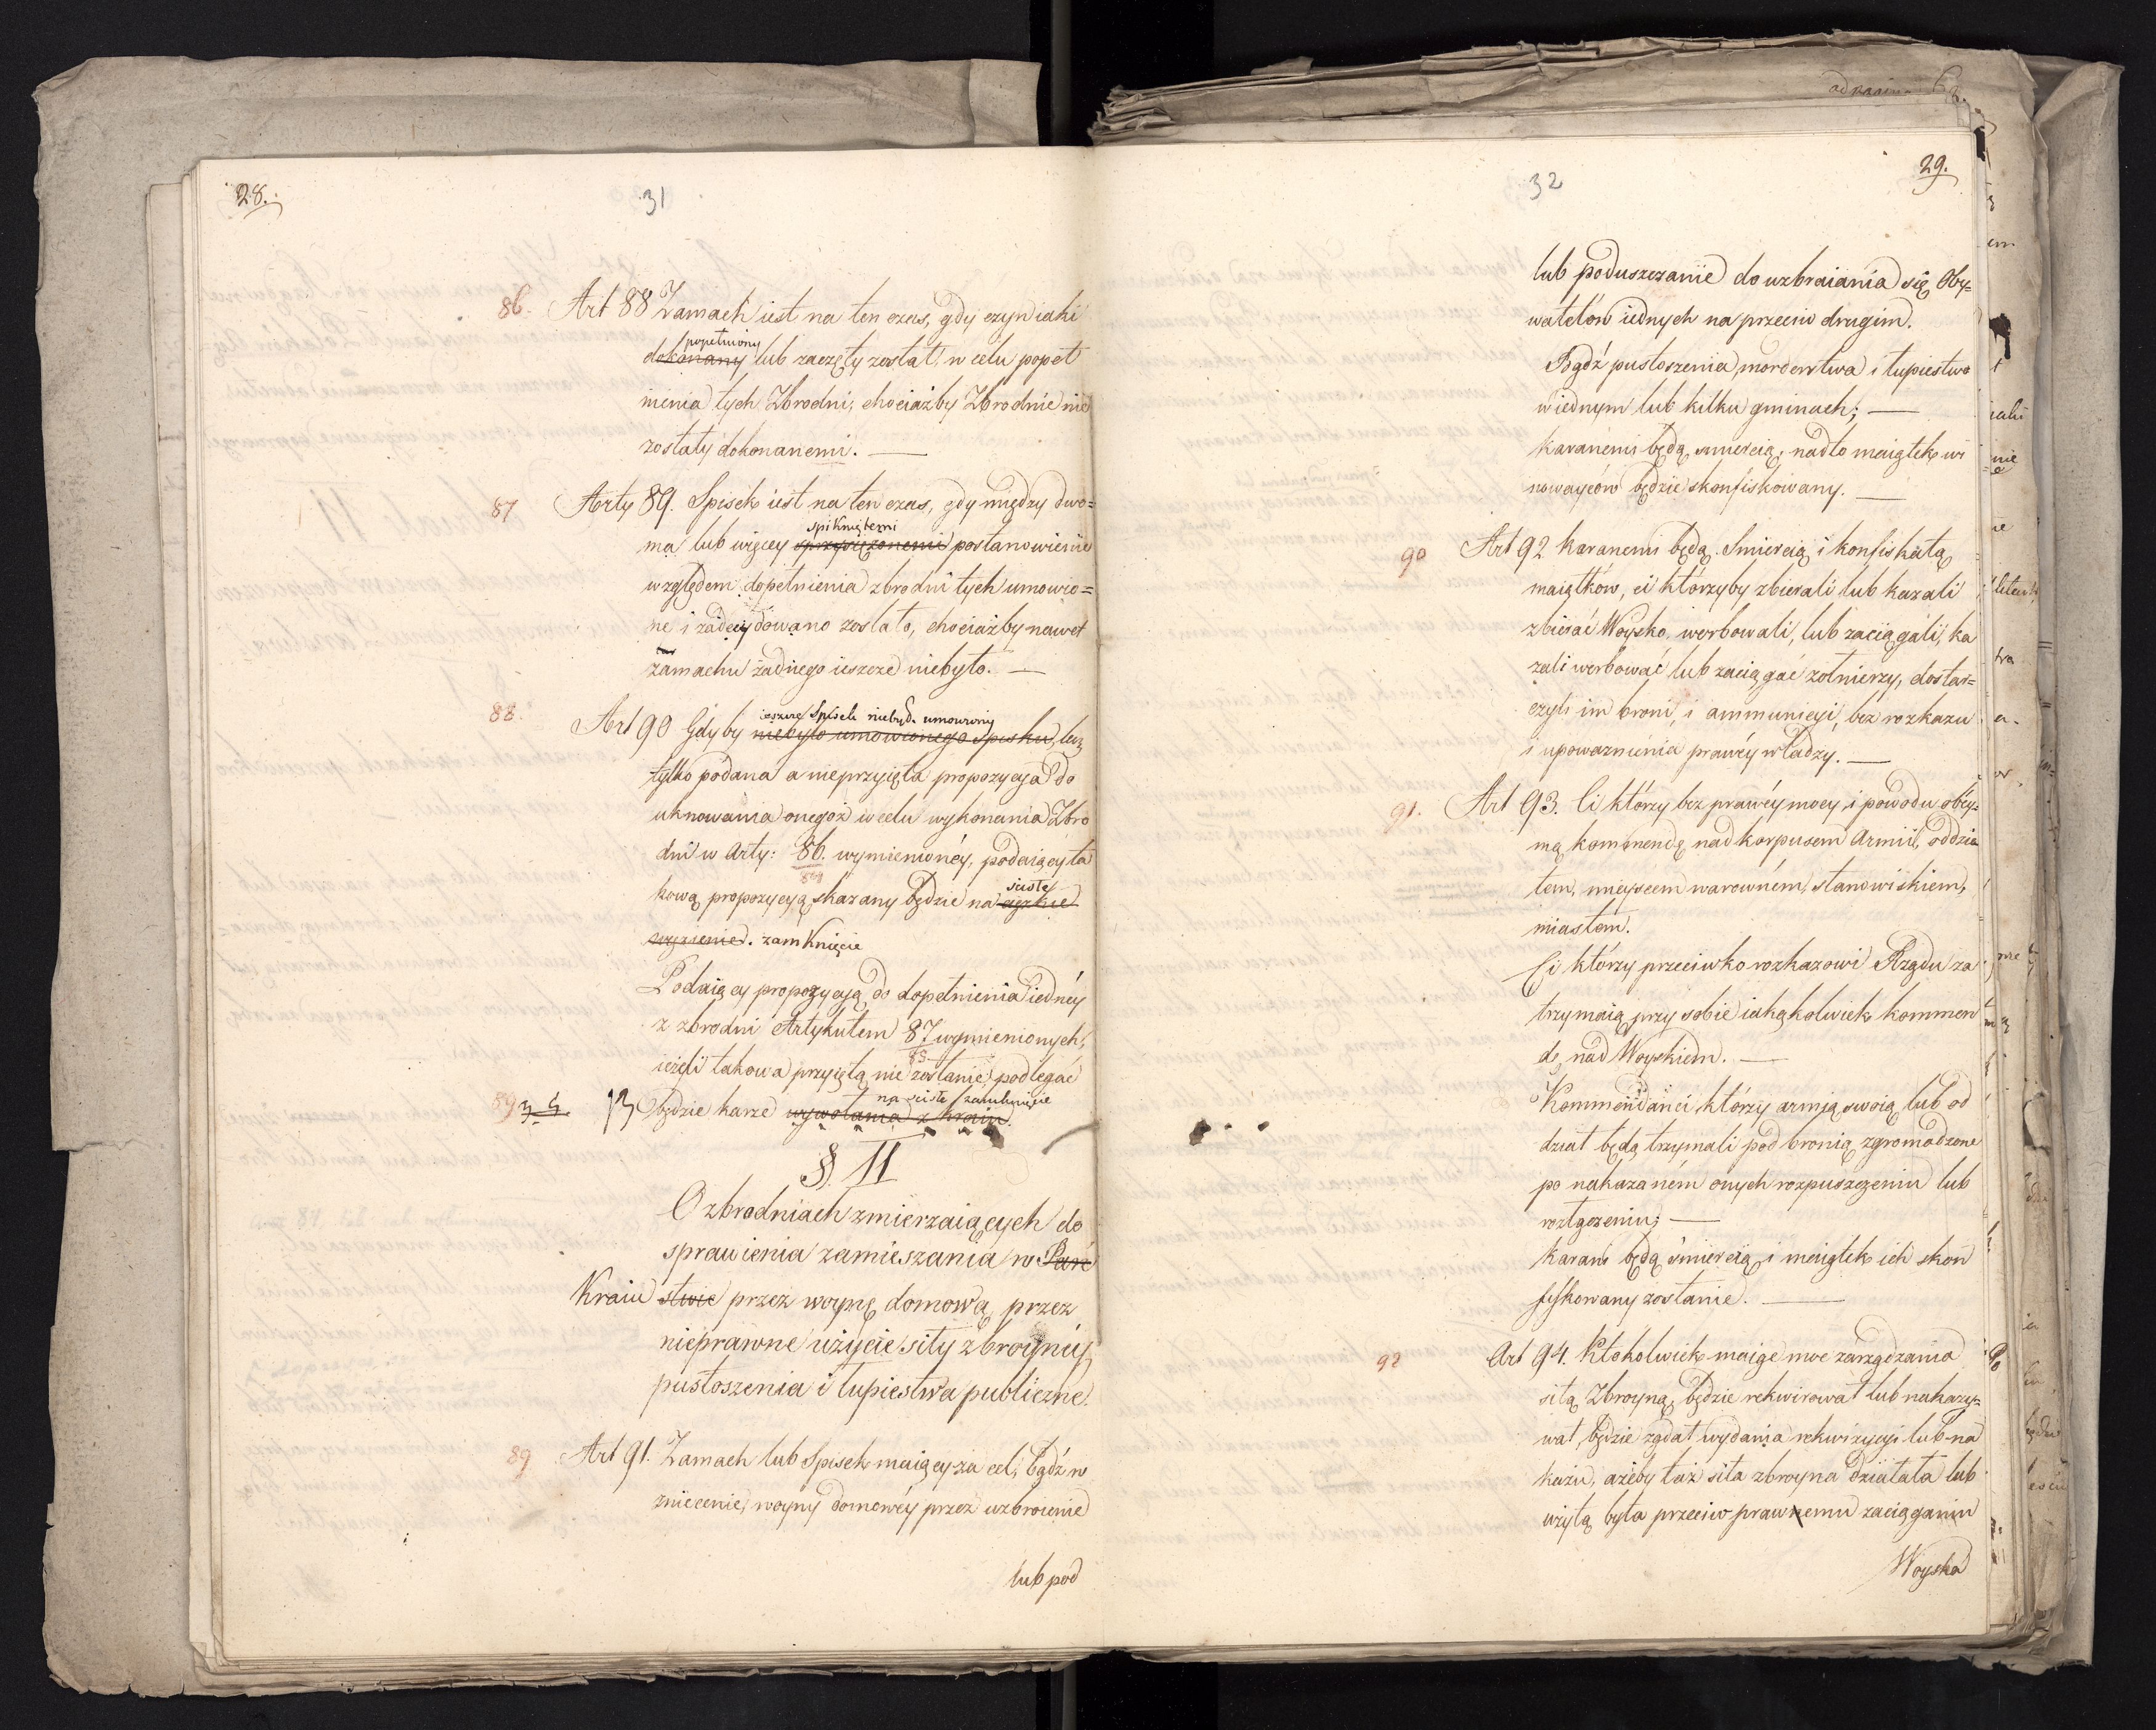 28.
31
86. Art 88 Zamach iest na ten czas, gdy czyn iaki
popełniony
dokonany lub zaczęty został, w celu popeł
nienia tych Zbrodni, chociażby Zbrodnie nie
zostały dokonanemi. —
87 Arty 89. Spisek iest na ten czas, gdy między dwo=
ma lub więcey sprzysiężonemi postanowienie
spikniętemi
względem dopełnienia zbrodni tych umowio=
ne i zadecydowano zostało, chociażby nawet
zamachu żadnego ieszcze niebyło. —
88. Art 90 Gdyby niebyło umowionego spisku, lecz
ieszcze Spisek niebył umowiony
tylko podana a nieprzyięta propozycya do
uknowania onegoż w celu wykonania Zbro
dni w Arty: 86. wymienioney, podaiący ta
84
kową propozycyą skazany będzie na ciężkie
ścisłe
więzienie. zamknięcie
Podaiący propozycyą do dopełnienia iedney
z zbrodni Artykułem 87 wymienionych,
85
ieżeli takowa przyiętą nie zostanie, podlegać
będzie karze wywołania z kraiu.
na ścisłe zamknięcie
§. II
O zbrodniach zmierzaiących do
sprawienia zamieszania w Pań
Kraiu stwie przez woynę domową, przez
nieprawne użycie siły zbroyney,
pustoszenia i łupiestwa publiczne.
89 Art 91. Zamach lub Spisek maiący za cel, bądź w
zniecenie woyny domowey przez uzbroienie
lub pod
29.
32
lub poduszczanie do uzbraiania się Oby=
watelów iednych na przeciw drugim.
Bądź pustoszenia, morderstwa i łupiestwo
w iednym lub kilku gminach; —
karanemi będą śmiercią, nadto maiątek wi
nowayców będzie skonfiskowany. —
90 Art 92 Karanemi będą Śmiercią i konfiskatą
maiątków, ci którzyby zbierali lub kazali
zbierać Woysko, werbowali, lub zaciągali, ka
zali werbować lub zaciągać żołnierzy, dostar=
czyli im broni, i ammunicyi, bez rozkazu
i upoważnienia prawéy władzy. —
91. Art 93. Ci którzy bez prawéy mocy i powodu obey=
mą kommendę nad korpusem Armii, oddzia
łem, mieyscem warowném, stanowiskiem,
miastem.
Ci którzy przeciwko rozkazowi Rządu za
trzymaią przy sobie iakąkolwiek kommen
dę nad Woyskiem. —
Kommendanci którzy armią swoią lub od
dział będą trzymali pod bronią zgromadzone
po nakazaném onych rozpuszczeniu lub
rozłączeniu; —
karani będą śmiercią i maiątek ich skon
fiskowany zostanie. —
92 Art 94. Ktokolwiek maiąc moc zarządzania
siłą Zbroyną, będzie rekwirował lub nakazy=
wał, będzie żądał wydania rekwizycyi lub na
kazu, ażeby taż siła zbroyna działała lub
użytą była przeciw prawnemu zaciąganiu
Woyska